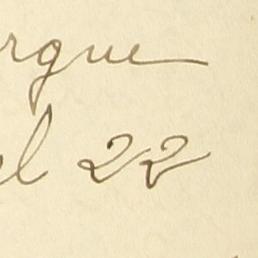 rgue
el 22